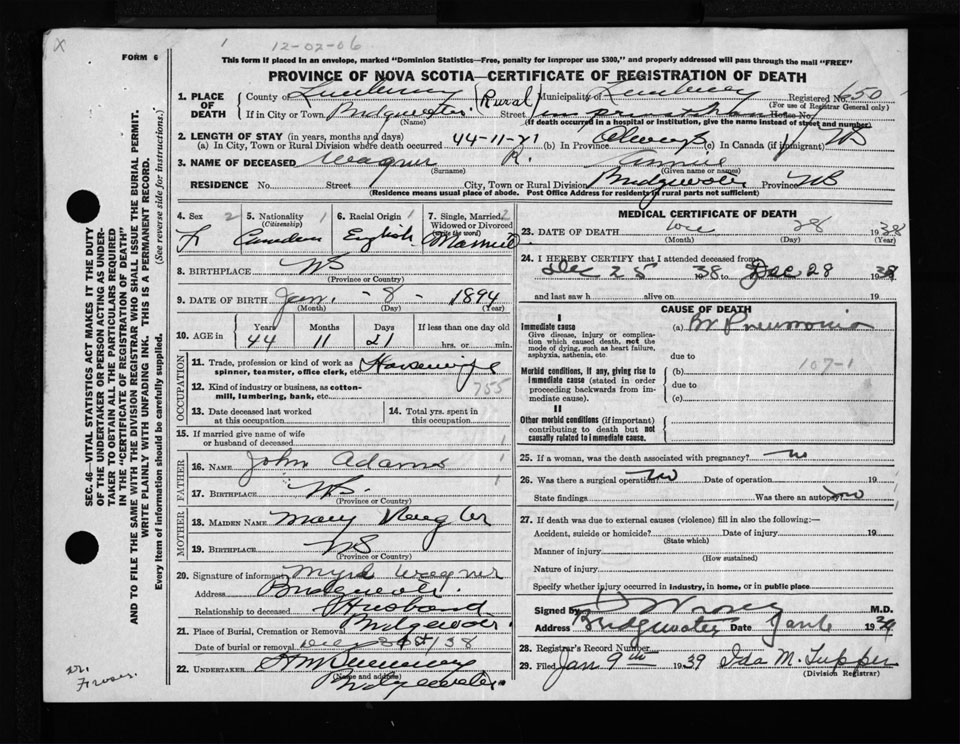 X
1
12-02-06
FORM 6
This form if placed in an envelope, marked "Dominion Statistics—Free, penalty for improper use $300," and properly addressed will pass through the mail "FREE"
PROVINCE OF NOVA SCOTIA—CERTIFICATE OF REGISTRATION OF DEATH
SEC. 46—VITAL STATISTICS ACT MAKES IT THE DUTY
OF THE UNDERTAKER OR PERSON ACTING AS UNDER-
TAKER TO OBTAIN ALL THE PARTICULARS REQUIRED
IN THE "CERTIFICATE OF REGISTRATION OF DEATH"
AND TO FILE THE SAME WITH THE DIVISION REGISTRAR WHO SHALL ISSUE THE BURIAL PERMIT.
WRITE PLAINLY WITH UNFADING INK. THIS IS A PERMANENT RECORD.
Every item of information should be carefully supplied. (See reverse side for instructions.)
1. PLACE OF DEATH County of Lunenburg (Rural) Municipality of Lunenburg Registered No. 650
(For use of Registrar General only)
If in City or Town Bridgewater Street House No.
(Name) (If death occurred in a hospital or institution, give the name instead of street and number)
2. LENGTH OF STAY (in years, months and days)
(a) In City, Town or Rural Division where death occurred 44-11-21 (b) In Province Always (c) In Canada (if immigrant)
3. NAME OF DECEASED Wagner R. Annie
(Surname) (Given name or names)
RESIDENCE No. Street City, Town or Rural Division Bridgewater Province NS
(Residence means usual place of abode. Post Office Address for residents in rural parts not sufficient)
4. Sex 2 5. Nationality 1 6. Racial Origin 1 7. Single, Married, 2
(Citizenship) Widowed or Divorced
(write the word)
F Canadian English Married
8. BIRTHPLACE NS
(Province or Country)
9. DATE OF BIRTH Jan. - 8 - 1894
(Month) (Day) (Year)
10. AGE in Years Months Days If less than one day old
44 11 21 hrs. or min.
OCCUPATION
11. Trade, profession or kind of work as
spinner, teamster, office clerk, etc. Housewife
12. Kind of industry or business, as cotton-
mill, lumbering, bank, etc. 755
13. Date deceased last worked
at this occupation
14. Total yrs. spent in
this occupation
15. If married give name of wife
or husband of deceased 1
FATHER
16. NAME John Adams 1
17. BIRTHPLACE NS.
(Province or Country)
MOTHER
18. MAIDEN NAME Mary Naugler
19. BIRTHPLACE NS
(Province or Country)
20. Signature of informant Wagner
Address Bridgewater
Relationship to deceased Husband
21. Place of Burial, Cremation or Removal Bridgewater
Date of burial or removal Dec 31st/38
22. UNDERTAKER
(Name and address)
Bridgewater
Dr.
Froser.
MEDICAL CERTIFICATE OF DEATH
23. DATE OF DEATH Dec 28 1938
(Month) (Day) (Year)
24. I HEREBY CERTIFY that I attended deceased from
Dec 25 38 to Dec 28 1938
and last saw h alive on 19
CAUSE OF DEATH
I
Immediate cause (a) Br Pneumonia
Give disease, injury or complica-
tion which caused death, not the
mode of dying, such as heart failure,
asphyxia, asthenia, etc.
due to
107-1
Morbid conditions, if any, giving rise to (b)
immediate cause (stated in order due to
proceeding backwards from im-
mediate cause). (c)
II
Other morbid conditions (if important)
contributing to death but not
causally related to immediate cause.
25. If a woman, was the death associated with pregnancy? no
26. Was there a surgical operation no Date of operation 19
State findings Was there an autopsy no
27. If death was due to external causes (violence) fill in also the following:—
Accident, suicide or homicide? Date of injury 19
(State which)
Manner of injury
(How sustained)
Nature of injury
Specify whether injury occurred in industry, in home, or in public place
Signed by M.D.
Address Bridgewater Date Jan 6 1939
28. Registrar's Record Number
29. Filed Jan 9th 1939 Ida M. Tupper
(Division Registrar)